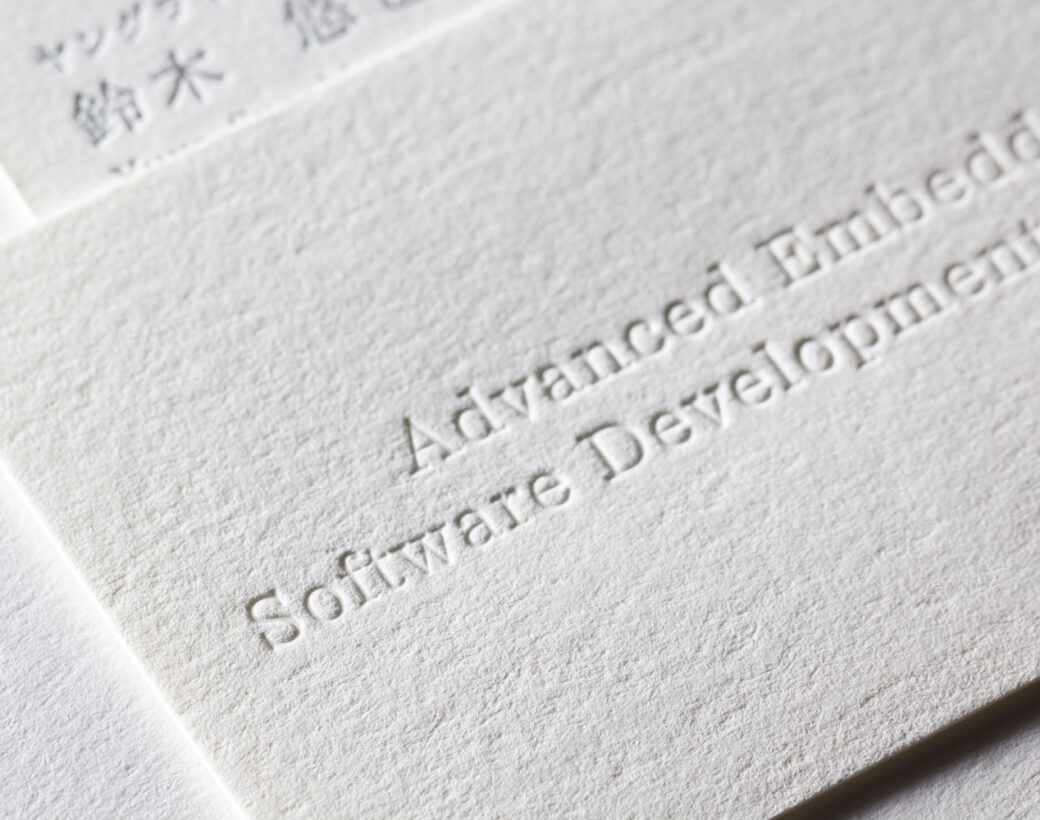 ヤングライ
鈴木 悠
Advanced Embedd
Software Development